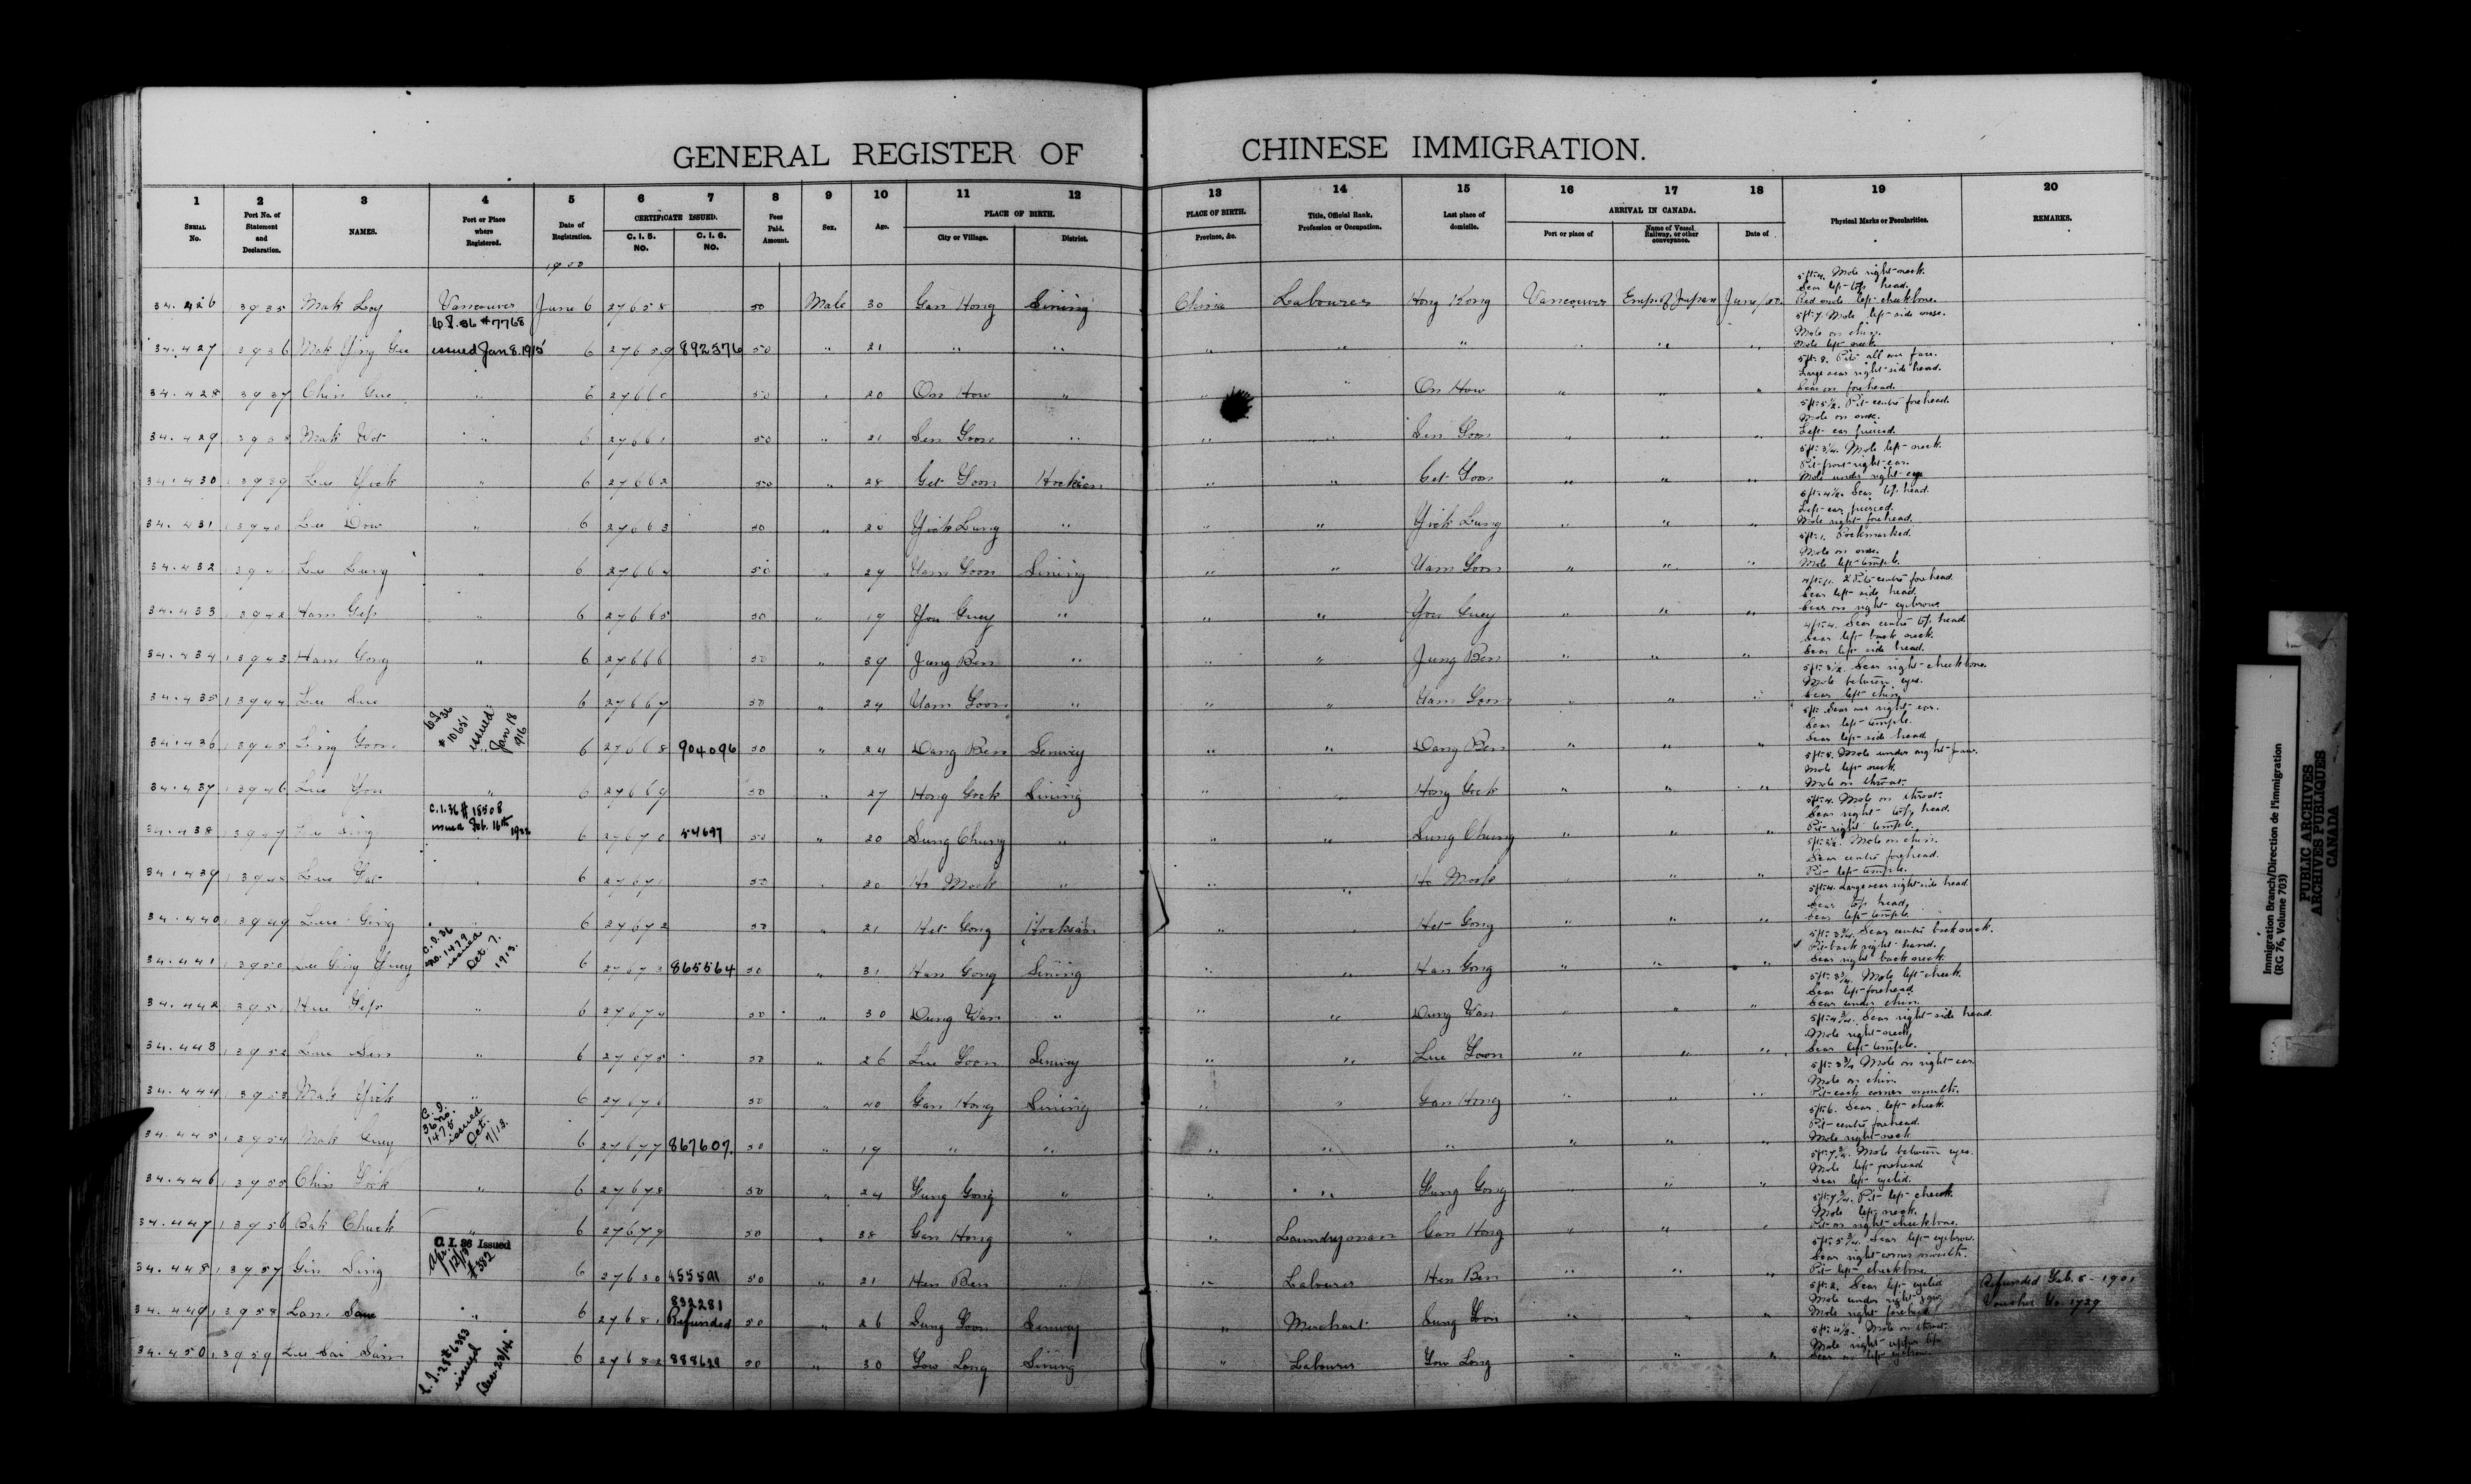 GENERAL REGISTER OF CHINESE IMMIGRATION.
1 2 3 4 5 6 7 8 9 10 11 12 13 14 15 16 17 18 19 20
SERIAL No. Port No. of Statement and Declaration. NAMES. Port or Place where Registered. Date of Registration. CERTIFICATE ISSUED. C. I. 5. NO. C. I. 6. NO. Fees Paid. Amount. Sex. Age. PLACE OF BIRTH. City or Village. District. PLACE OF BIRTH. Province, &c. Title, Official Rank, Profession or Occupation. Last place of domicile. ARRIVAL IN CANADA. Port or place of Name of Vessel, Railway, or other conveyance. Date of Physical Marks or Peculiarities. REMARKS.
1900
34.426 13935 Mak Loy Vancouver June 6 27658 50 Male 30 Gan Hong Sining China Labourer Hong Kong Vancouver Emp. of Japan June 5ft-4. Mole right neck. Scar left top head. Red mole left cheekbone.
34.427 13936 Mak Ying Gee C.I.36 #7768 issued Jan 8. 1915 6 27659 892576 50 " 21 " " " " " " " " 5ft-7. Mole left side nose. Mole on chin. Mole left neck.
34.428 13937 Chin Gee " 6 27660 50 " 20 On How " " " On How " " " 5ft-8. Pits all over face. Large scar right side head. Scar on forehead.
34.429 13938 Mak Wot " 6 27661 50 " 21 Sen Goon " " " Sen Goon " " " 5ft-5½. Pit centre forehead. Mole on nose. Left ear pierced.
34.430 13939 Lee Yick " 6 27662 50 " 28 Get Goon Hoksan " " Get Goon " " " 5ft-3¼. Mole left neck. Pit front right ear. Mole under right eye
34.431 13940 Lee Dow " 6 27663 50 " 20 Yick Lung " " " Yick Lung " " " 5ft-4½. Scar top head. Left ear pierced. Mole right forehead.
34.432 13941 Lee Lung " 6 27664 50 " 29 Uam Goon Sining " " Uam Goon " " " 5ft-1. Pockmarked. Mole on nose. Mole left temple.
34.433 13942 Ham Gep " 6 27665 50 " 19 You Guey " " " You Guey " " " 2 Pits centre forehead. Scar left side head. Scar on right eyebrow.
34.434 13943 Ham Gong " 6 27666 50 " 39 Jung Ben " " " Jung Ben " " " Scar centre top head. Scar left back neck. Scar left side head.
34.435 13944 Lee Sue " 6 27667 50 " 24 Uam Goon " " " Uam Goon " " " 5ft-3½. Scar right cheekbone. Mole between eyes. Scar left chin.
34.436 13945 Ling Goon C.I.36 #10651 issued Jan 18 1916 6 27668 904096 50 " 24 Dang Ben Sinwey " " Dang Ben " " " 5ft- Scar over right ear. Scar left temple. Scar left side head
34.437 13946 Lee You " 6 27669 50 " 27 Hong Gock Sining " " Hong Gock " " " 5ft-5. Mole under right jaw. Mole left neck. Mole on throat.
34.438 13947 Lee Sing C.I.36 #18508 issued Feb. 16th 1922 6 27670 54697 50 " 20 Sung Chung " " " Sung Chung " " " 5ft-4. Mole on throat. Scar right top head. Pit right temple.
34.439 13948 " 6 27671 50 " 20 Ho Mook " " " Ho Mook " " " Mole on chin. Scar centre forehead. Pit left temple.
34.440 13949 " 6 27672 50 " 21 Het Gong Hoksan " " Het Gong " " " 5ft-4. Large scar right side head. Scar top head. Scar left temple
34.441 13950 Lee Ging Guey C.I.36 No. 1479 issued Oct. 7. 1913. 6 27673 865564 50 " 31 Han Gong Sining " " Han Gong " " " 5ft-3¾. Scar centre back neck. Pit back right hand. Scar right back neck.
34.442 13951 " 6 27674 50 " 30 Dung Wan " " " Dung Wan " " " 5ft-3¾. Mole left cheek. Scar left forehead. Scar under chin.
34.443 13952 " 6 27675 50 " 26 Lee Goon Sinwey " " Lee Goon " " " 5ft-4¾. Scar right side head. Mole right neck. Scar left temple.
34.444 13953 Mak Yick " 6 27676 50 " 40 Gan Hong Sining " " Gan Hong " " " 5ft-3¾ Mole on right ear. Mole on chin. Pit each corner mouth.
34.445 13954 Mak Guey C.I. 36 No. 1475 issued Oct. 7/13. 6 27677 867607. 50 " 19 " " " " " " " " 5ft-6. Scar left cheek. Pit centre forehead. Mole right neck
34.446 13955 Chin Gock " 6 27678 50 " 24 Gung Gong " " " Gung Gong " " " 5ft-7¾. Mole between eyes. Mole left forehead Scar left eyelid.
34.447 13956 Bak Chuck " 6 27679 50 " 38 Gan Hong " " Laundryman Gan Hong " " " 5ft-7¾. Pit left cheek. Mole left neck. Pit on right cheekbone.
34.448 13957 Gin Sing C. I. 36 Issued Apr. 12/13 #382 6 27680 455501 50 " 21 Hen Ben " " Labourer Hen Ben " " " 5ft-5¾. Scar left eyebrow. Scar right corner mouth. Pit left cheekbone.
34.449 13958 Lam Sam " 6 27681 832281 Refunded 50 " 26 Sung Goon Sinwey " Merchant Sung Goon " " " 5ft-2. Scar left eyelid Mole under right jaw. Mole right forehead Refunded Feb. 5-1901 Voucher No. 1729
34.450 13959 Lee Sai Sam issued Dec. 23/14. 6 27682 50 " 30 Gow Long Sining " Labourer Gow Long " " " 5ft-4½. Mole on throat. Mole right upper lip. Scar on left eyebrow.
Immigration Branch/Direction de l'immigration
(RG 76, Volume 703)
PUBLIC ARCHIVES
ARCHIVES PUBLIQUES
CANADA